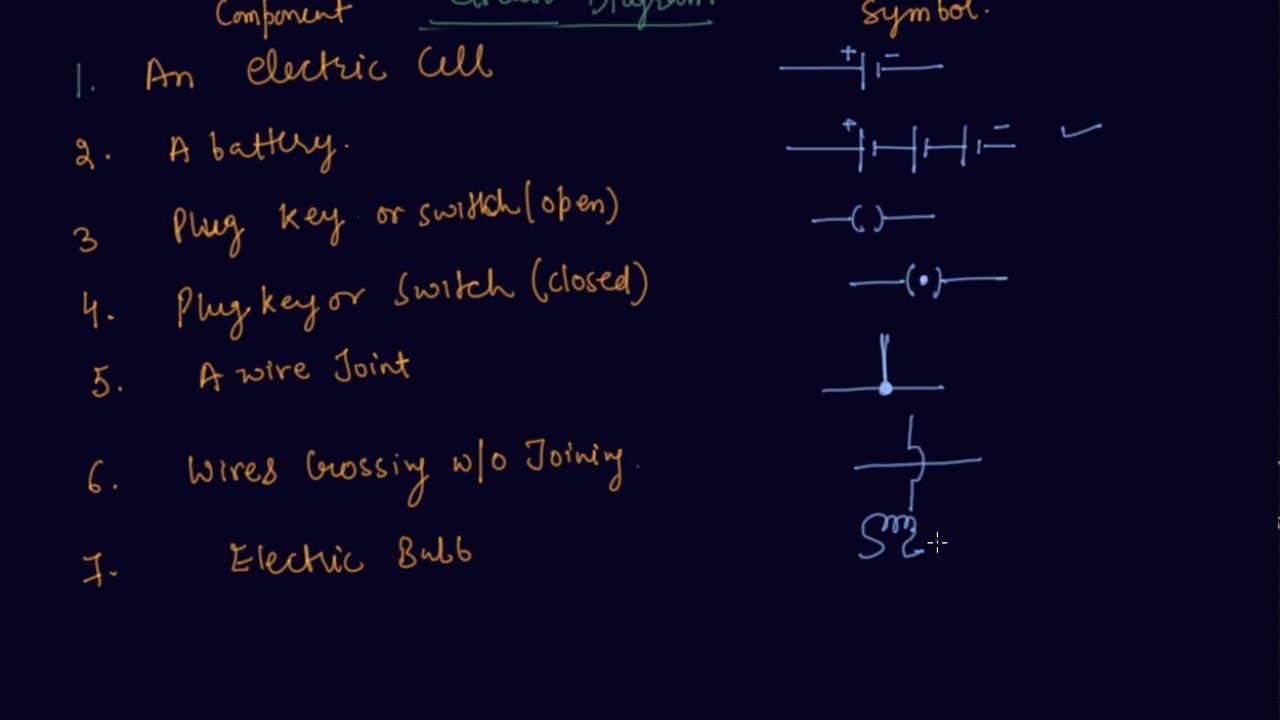 Component Circuit Diagram. Symbol.
1. An electric Cell + -
2. A battery. + -
3 Plug key or switch (open)
4. Plug key or Switch (closed)
5. A wire Joint
6. Wires Crossing w/o Joining.
7. Electric Bulb